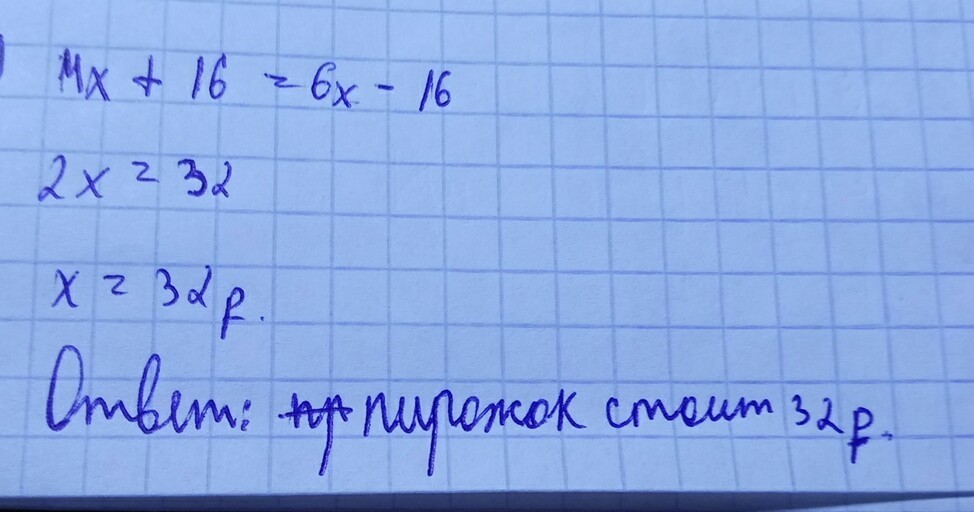 4x + 16 = 6x - 16
2x = 32
x = 32 р.
Ответ: пирожок стоит 32 р.